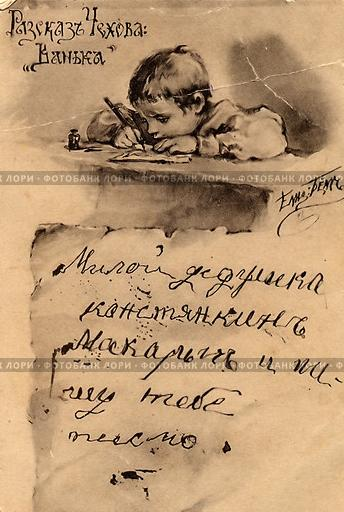 Разсказъ Чехова:
„Ванька“
ЛОРИ · ФОТОБАНК ЛОРИ · ФОТОБАНК ЛОРИ · ФОТОБАНК ЛОРИ
Милой дедушка
констянкинъ
Макарычъ и пи-
шу тебе
писмо.
ЛОРИ · ФОТОБАНК ЛОРИ · ФОТОБАНК ЛОРИ · ФОТОБАНК ЛОРИ